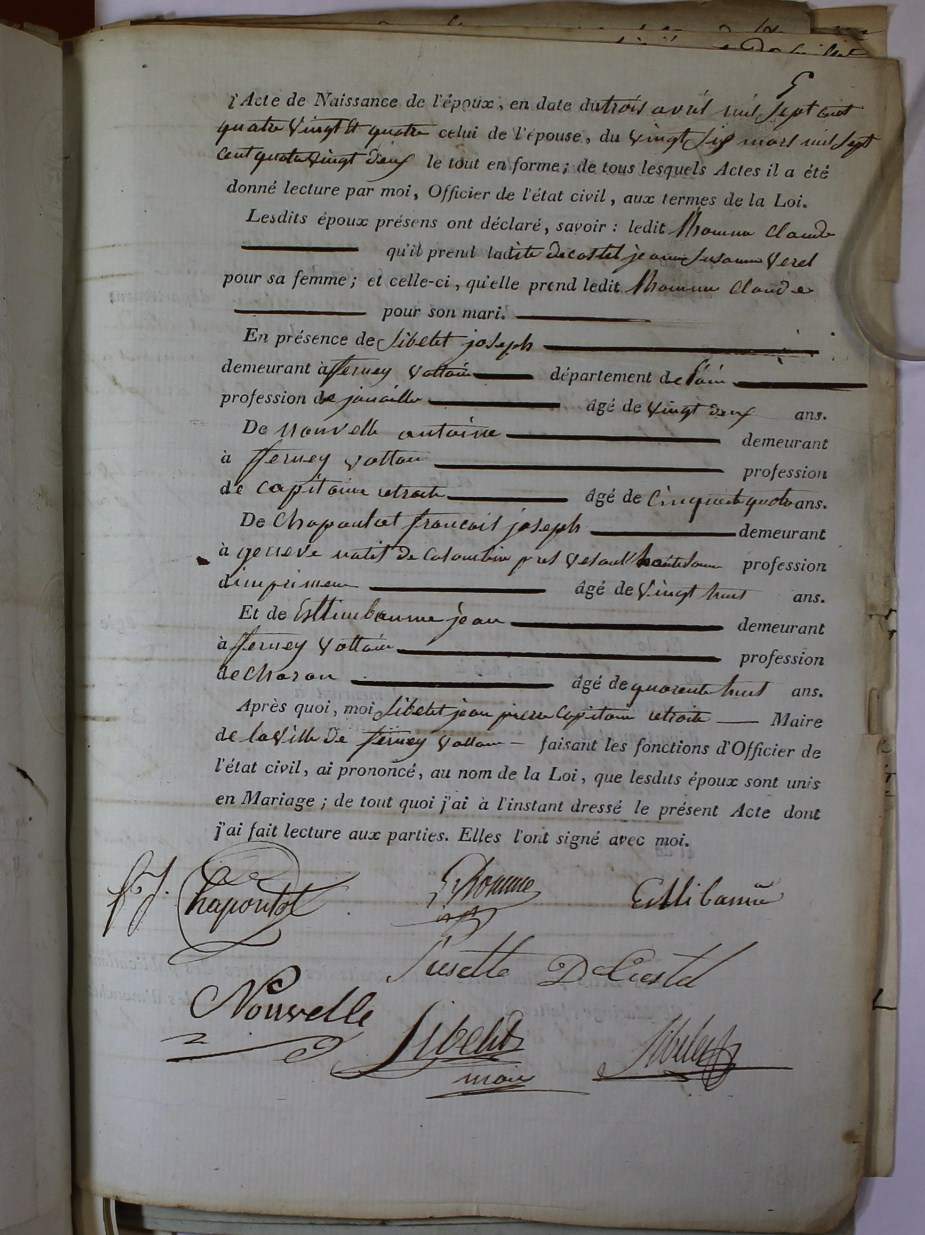 5
l'Acte de Naissance de l'époux, en date du trois avril mil sept cent
quatre vingt et quatre celui de l'épouse, du vingt six mars mil sept
cent quatre vingt deux le tout en forme; de tous lesquels Actes il a été
donné lecture par moi, Officier de l'état civil, aux termes de la Loi.
Lesdits époux présens ont déclaré, savoir : ledit Rhomme Claude
qu'il prend ladite decastel jeanne Susanne
pour sa femme; et celle-ci, qu'elle prend ledit Rhomme Claude
pour son mari.
En présence de Sibelit joseph
demeurant à fferney Voltaire département de l'ain
profession de joaillier âgé de vingt deux ans.
De nouvelle antoine demeurant
à fferney Voltaire profession
de capitaine retraite âgé de Cinquante quatre ans.
De Chapoutot francois joseph demeurant
à geneve natif de Colombin pres Vesoul haute Saone profession
d'imprimeur âgé de Vingt huit ans.
Et de Esttimbaume jean demeurant
à fferney Voltaire profession
de Charon âgé de quarente huit ans.
Après quoi, moi Sibelit jean pierre Capitaine retraite Maire
de la Ville De fferney Voltaire faisant les fonctions d'Officier de
l'état civil, ai prononcé, au nom de la Loi, que lesdits époux sont unis
en Mariage; de tout quoi j'ai à l'instant dressé le présent Acte dont
j'ai fait lecture aux parties. Elles l'ont signé avec moi.
f. J. Chapoutot Rhomme
Susette DeCastel
Nouvelle Sibelit
maire